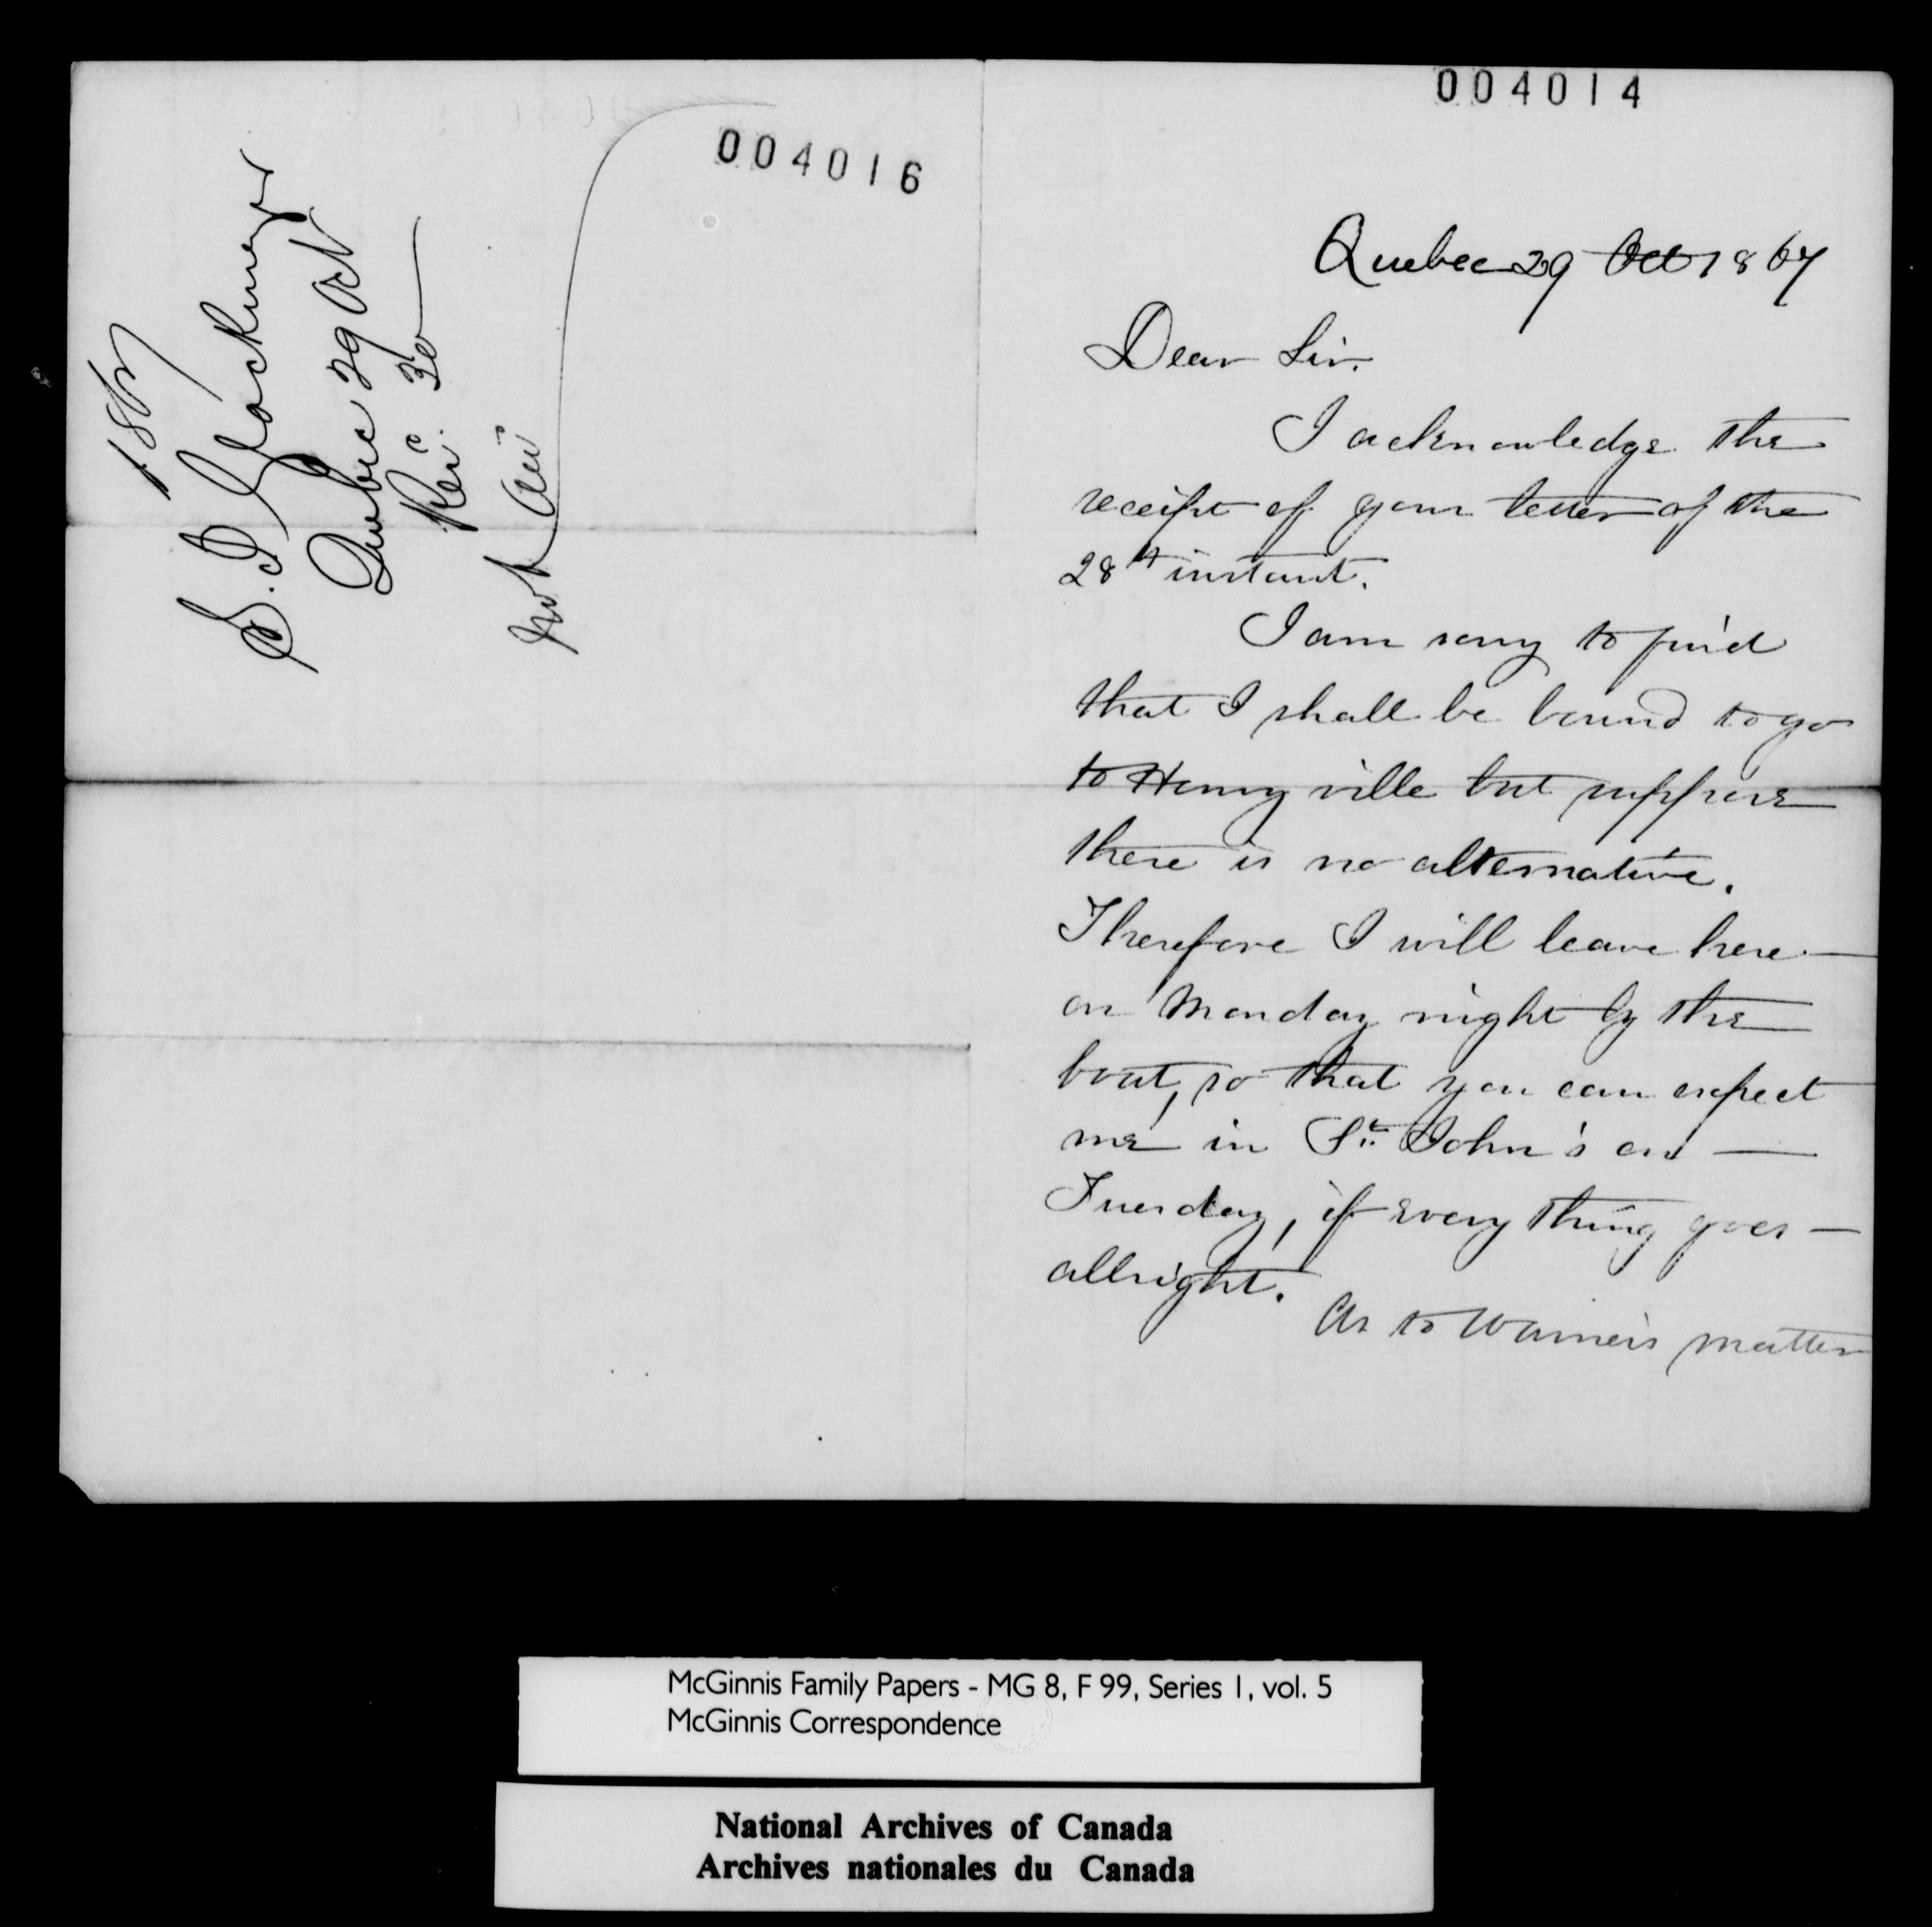 004016
1867
S. I. Glackmeyer
Quebec 29 Oct
Rec. 30
Not Ans
004014
Quebec 29 Oct 1867
Dear Sir.
I acknowledge the
receipt of your letter of the
28th instant.
I am sorry to find
that I shall be bound to go
to Henryville but suppose
there is no alternative.
Therefore I will leave here —
on Monday night by the
boat, so that you can expect
me in St. John's on —
Tuesday, if every thing goes —
allright.
As to Warner's matter
McGinnis Family Papers - MG 8, F 99, Series 1, vol. 5
McGinnis Correspondence
National Archives of Canada
Archives nationales du Canada